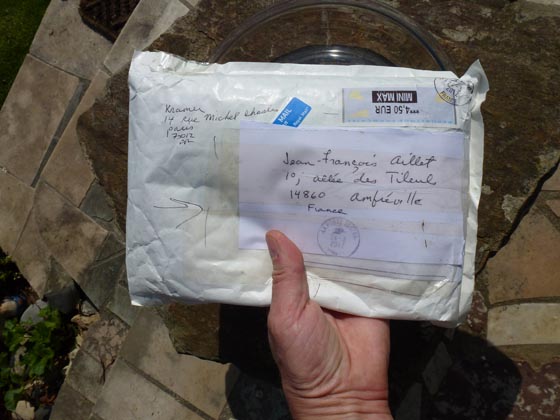 Kramer
14 rue Michel Chasles
paris
75012
MAIL
***4,50 EUR
MINI MAX
Jean-François Aillet
10, allée des Tilleuls
14860 Amfréville
France